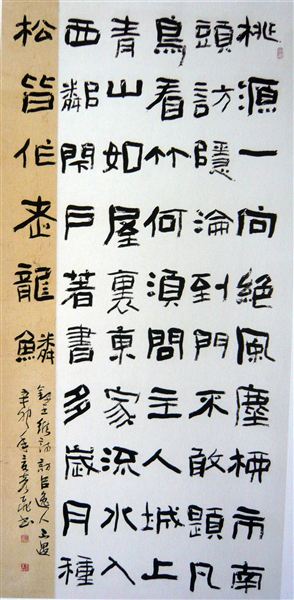 桃源一向絕風塵柳市南
頭訪隱淪到門不敢題凡
鳥看竹何須問主人城上
青山如屋裏東家流水入
西鄰閉戶著書多歲月種
松皆作老龍鱗
錄王維詩訪呂逸人不遇
辛卯年